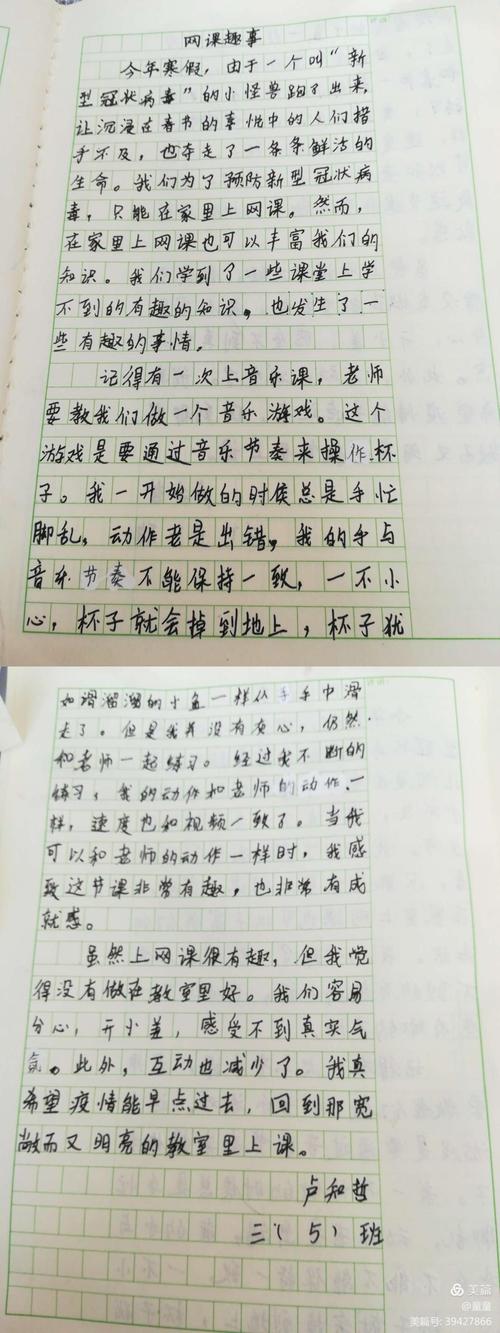 网课趣事
今年寒假，由于一个叫“新
型冠状病毒”的小怪兽跑了出来，
让沉浸在春节的喜悦中的人们措
手不及，也夺走了一条条鲜活的
生命。我们为了预防新型冠状病
毒，只能在家里上网课。然而，
在家里上网课也可以丰富我们的
知识。我们学到了一些课堂上学
不到的有趣的知识，也发生了一
些有趣的事情。
记得有一次上音乐课，老师
要教我们做一个音乐游戏。这个
游戏是要通过音乐节奏来操作杯
子。我一开始做的时侯总是手忙
脚乱，动作老是出错，我的手与
音乐节奏不能保持一致，一不小
心，杯子就会掉到地上，杯子犹
如滑溜溜的小鱼一样从手手中滑
走了。但是我并没有灰心，仍然
和老师一起练习。经过我不断的
练习，我的动作和老师的动作一
样，速度也和视频一致了。当我
可以和老师的动作一样时，我感
到这节课非常有趣，也非常有成
就感。
虽然上网课很有趣，但我觉
得没有做在教室里好。我们容易
分心，开小差，感受不到真实气
氛。此外，互动也减少了。我真
希望疫情能早点过去，回到那宽
敞而又明亮的教室里上课。
卢知哲
三（5）班
美篇
@童童
美篇号: 39427866